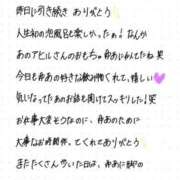 昨日に引き続き ありがとう
人生初の泡風呂も楽しかった! なんか
あのアヒルさんのおもちゃ 舟あにかんてたね 笑
今日も舟あの好きな飲み物くれて、嬉しい
気になってたあのお話も聞けてスッキリした! 笑
お仕事大変そうなのに、舟あのために
大事なお時間作ってくれてありがとう
またたくさん歩いた日は、舟あに脚の